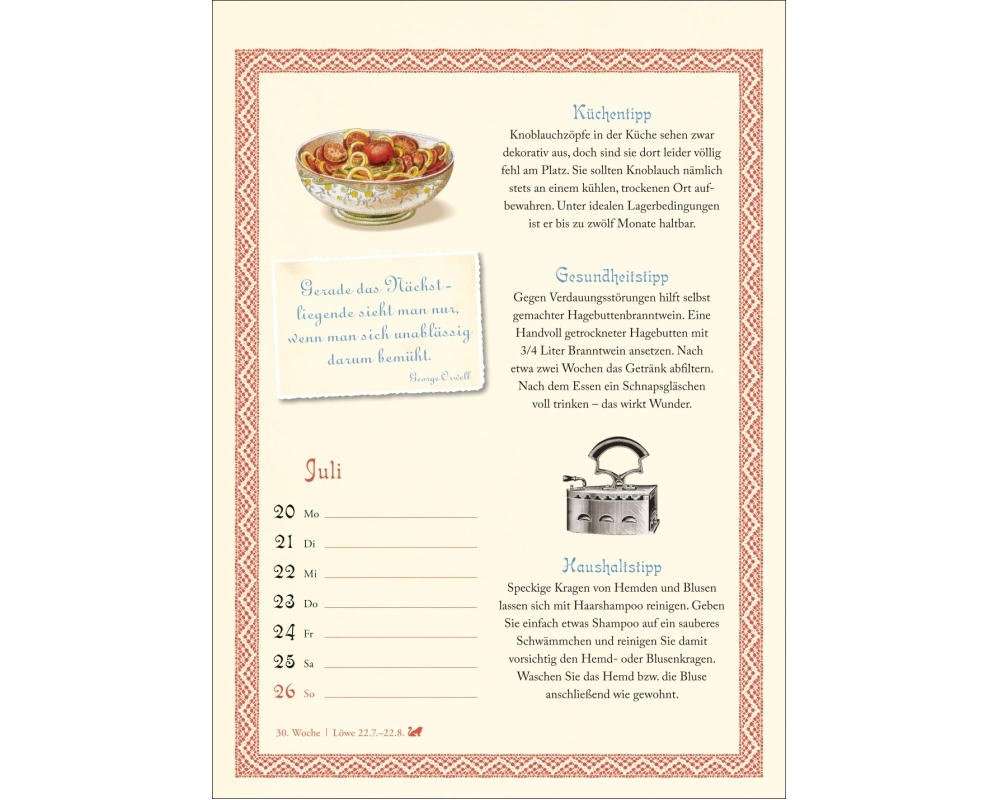 Küchentipp
Knoblauchzöpfe in der Küche sehen zwar
dekorativ aus, doch sind sie dort leider völlig
fehl am Platz. Sie sollten Knoblauch nämlich
stets an einem kühlen, trockenen Ort auf-
bewahren. Unter idealen Lagerbedingungen
ist er bis zu zwölf Monate haltbar.
Gerade das Nächst-
liegende sieht man nur,
wenn man sich unablässig
darum bemüht.
George Orwell
Gesundheitstipp
Gegen Verdauungsstörungen hilft selbst
gemachter Hagebuttenbranntwein. Eine
Handvoll getrockneter Hagebutten mit
3/4 Liter Branntwein ansetzen. Nach
etwa zwei Wochen das Getränk abfiltern.
Nach dem Essen ein Schnapsgläschen
voll trinken – das wirkt Wunder.
Juli
20 Mo
21 Di
22 Mi
23 Do
24 Fr
25 Sa
26 So
30. Woche | Löwe 22.7.–22.8.
Haushaltstipp
Speckige Kragen von Hemden und Blusen
lassen sich mit Haarshampoo reinigen. Geben
Sie einfach etwas Shampoo auf ein sauberes
Schwämmchen und reinigen Sie damit
vorsichtig den Hemd- oder Blusenkragen.
Waschen Sie das Hemd bzw. die Bluse
anschließend wie gewohnt.